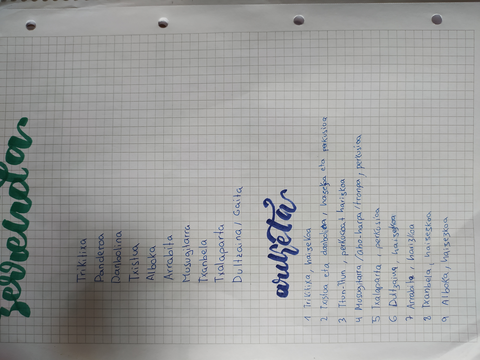 zerrenda
Trikitixa
Panderoa
Danbolina
Txistua
Alboka
Arrabita
Musugitarra
Txanbela
Txalaparta
Dultzaina / Gaita
ariketa
1 Trikitixa, haizekoa
2 Txistua eta danbolina, haizekoa eta perkusioa
3 Ttun-ttun, perkusioa + harizkoa
4 Musugitarra / aho-harpa / tronpa, perkusioa
5 txalaparta, perkusioa
6 Dultzaina, haizekoa
7 Arrabita, harizkoa
8 Txanbela, haizezkoa
9 Alboka, haizezkoa